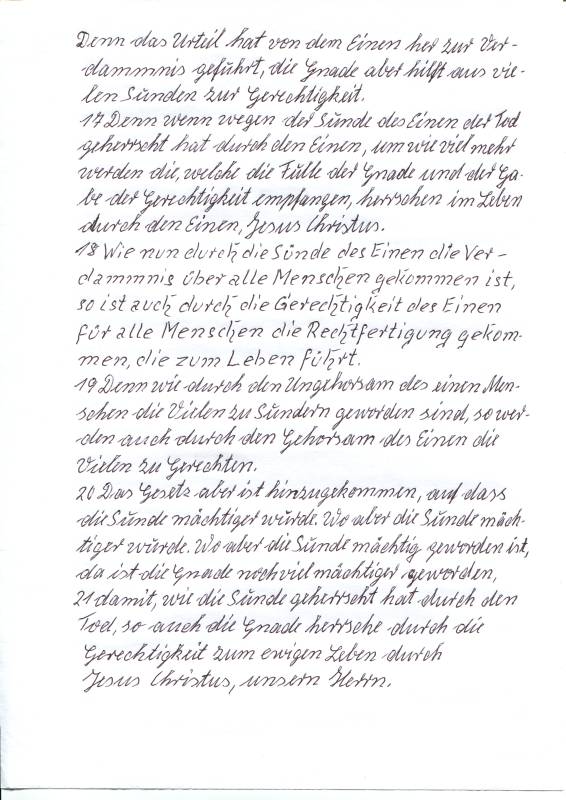 Denn das Urteil hat von dem Einen her zur Ver-
dammnis geführt, die Gnade aber hilft aus vie-
len Sünden zur Gerechtigkeit.
17 Denn wenn wegen der Sünde des Einen der Tod
geherrscht hat durch den Einen, um wie viel mehr
werden die, welche die Fülle der Gnade und der Ga-
be der Gerechtigkeit empfangen, herrschen im Leben
durch den Einen, Jesus Christus.
18 Wie nun durch die Sünde des Einen die Ver-
dammnis über alle Menschen gekommen ist,
so ist auch durch die Gerechtigkeit des Einen
für alle Menschen die Rechtfertigung gekom-
men, die zum Leben führt.
19 Denn wie durch den Ungehorsam des einen Men-
schen die Vielen zu Sündern geworden sind, so wer-
den auch durch den Gehorsam des Einen die
Vielen zu Gerechten.
20 Das Gesetz aber ist hinzugekommen, auf dass
die Sünde mächtiger würde. Wo aber die Sünde mäch-
tiger würde. Wo aber die Sünde mächtig geworden ist,
da ist die Gnade noch viel mächtiger geworden,
21 damit, wie die Sünde geherrscht hat durch den
Tod, so auch die Gnade herrsche durch die
Gerechtigkeit zum ewigen Leben durch
Jesus Christus, unsern Herrn.